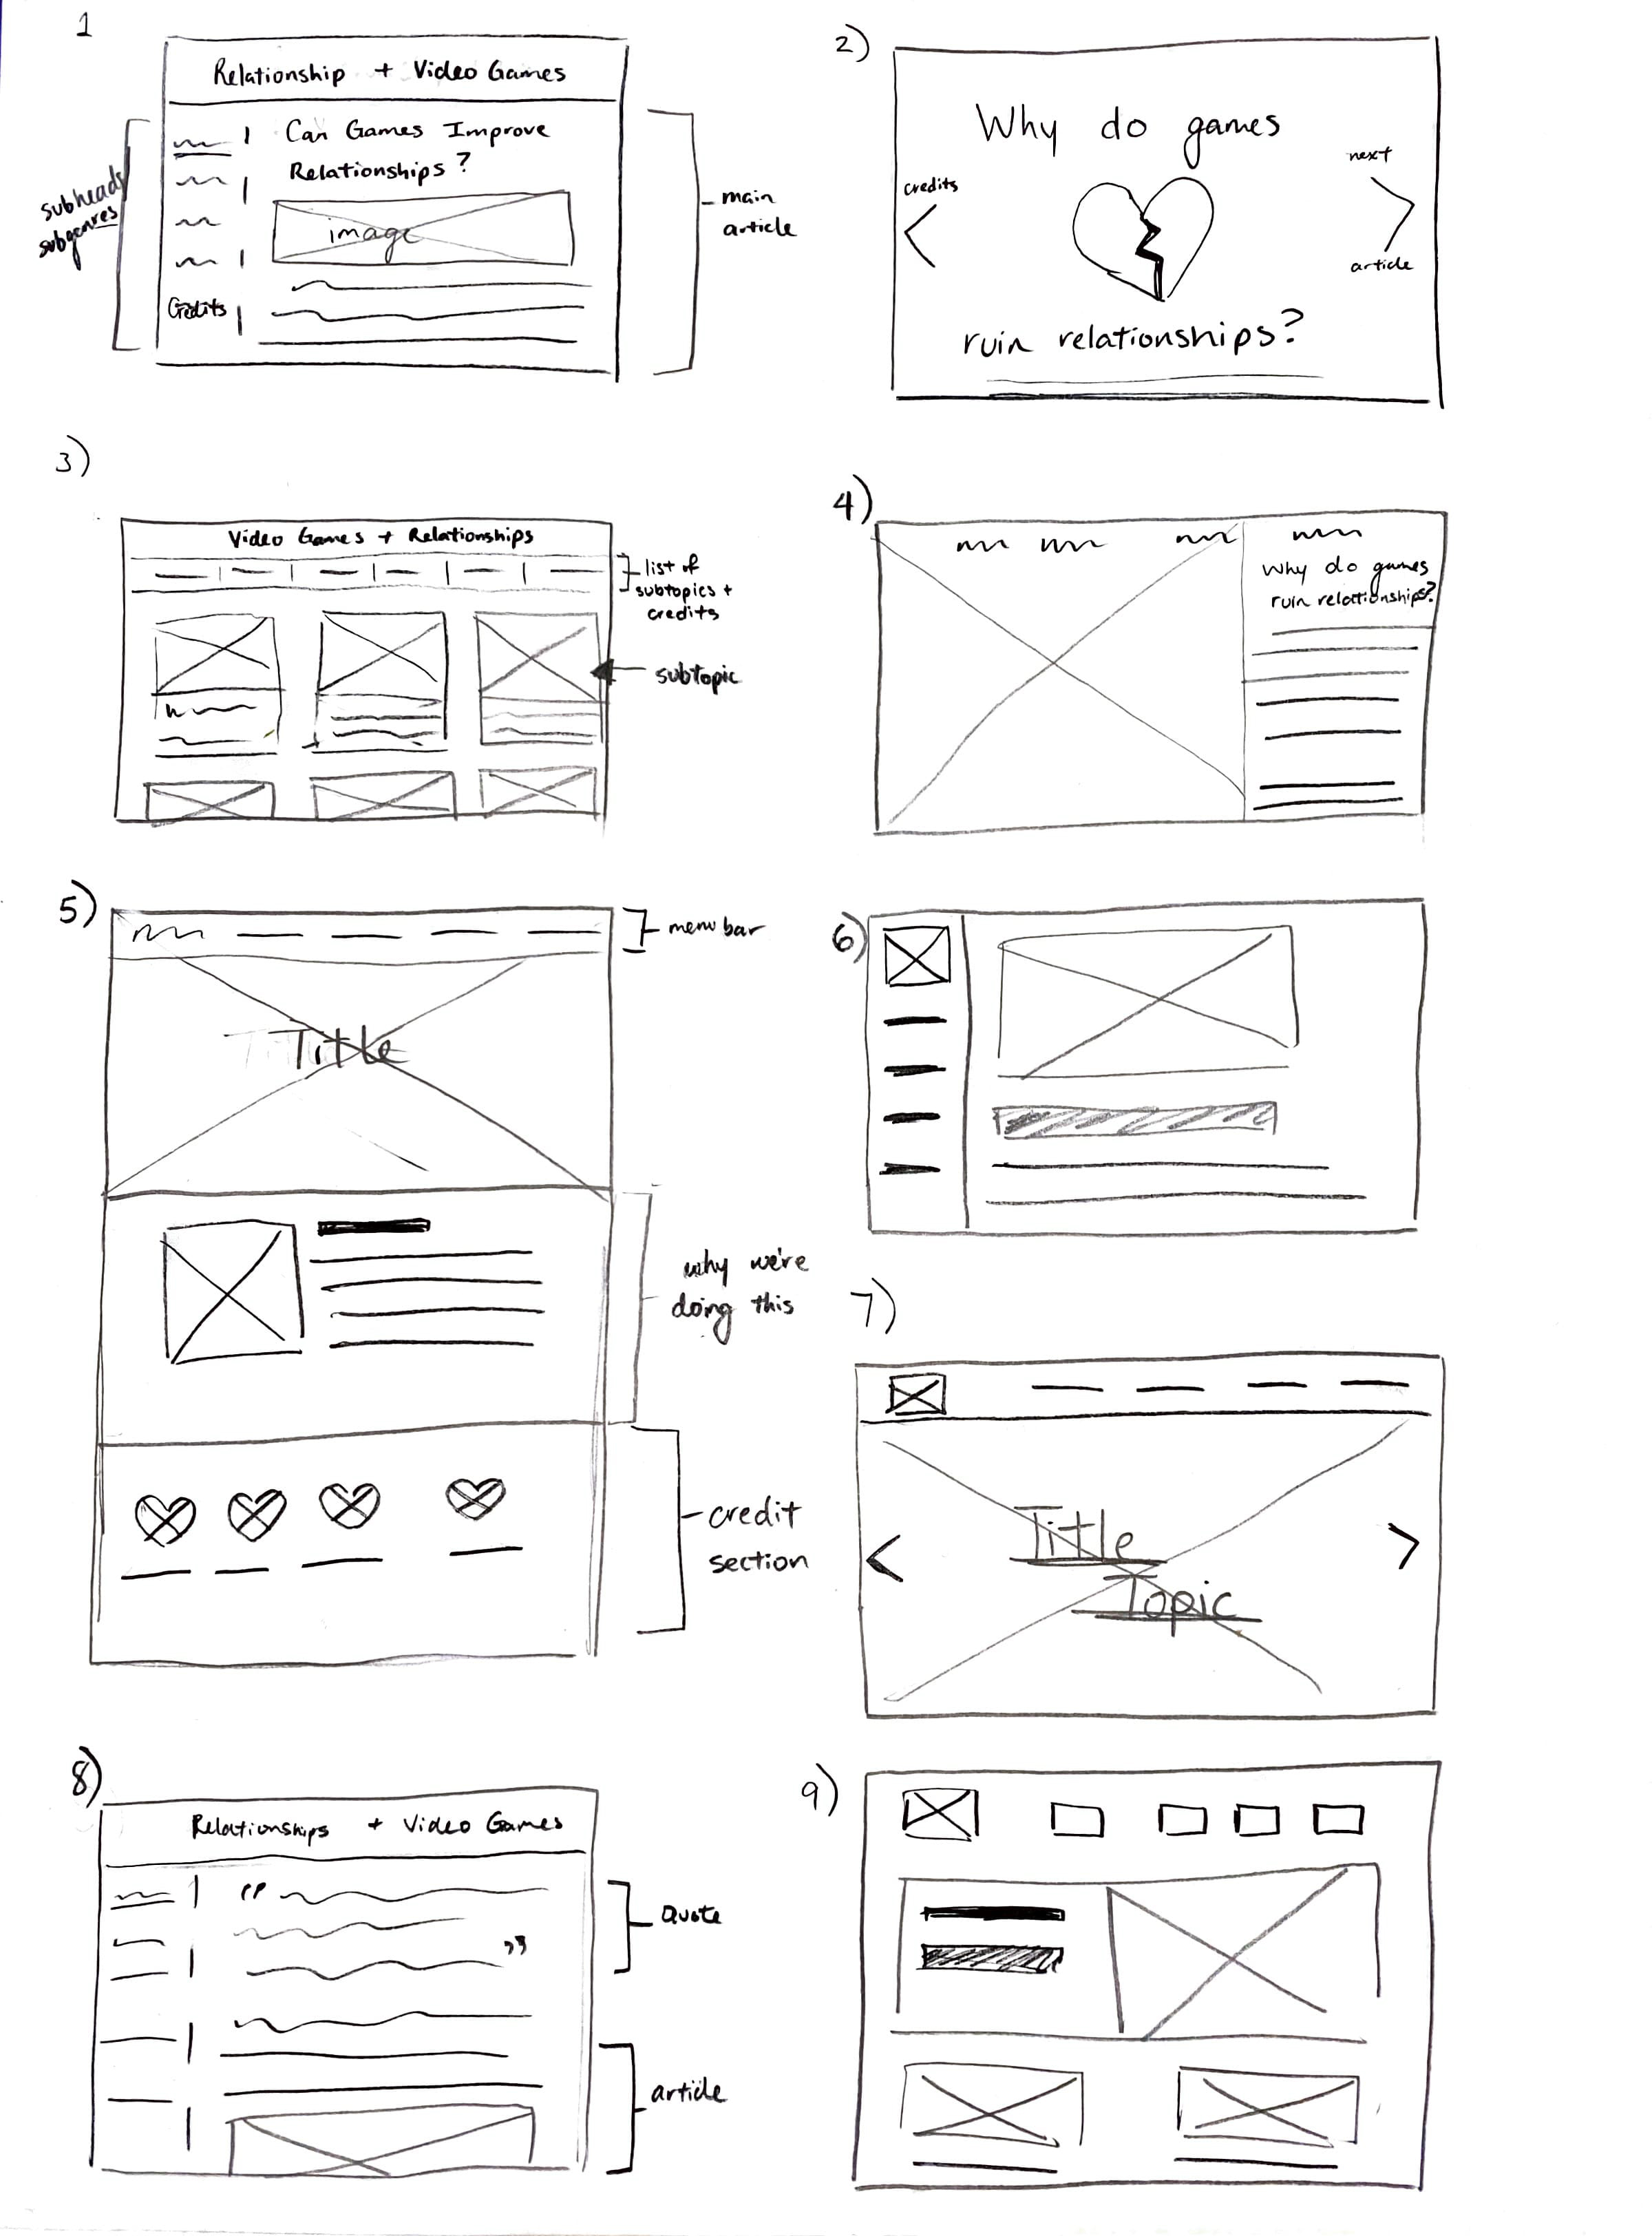 1
Relationship + Video Games
Can Games Improve
Relationships?
image
Credits
subheads
subgenres
main
article
2)
Why do games
credits
next
article
ruin relationships?
3)
Video Games + Relationships
list of
subtopics +
credits
subtopic
4)
Why do games
ruin relationships?
5)
menu bar
Title
why we're
doing this
credit
section
6)
7)
Title
Topic
8)
Relationships + Video Games
"
"
Quote
article
9)